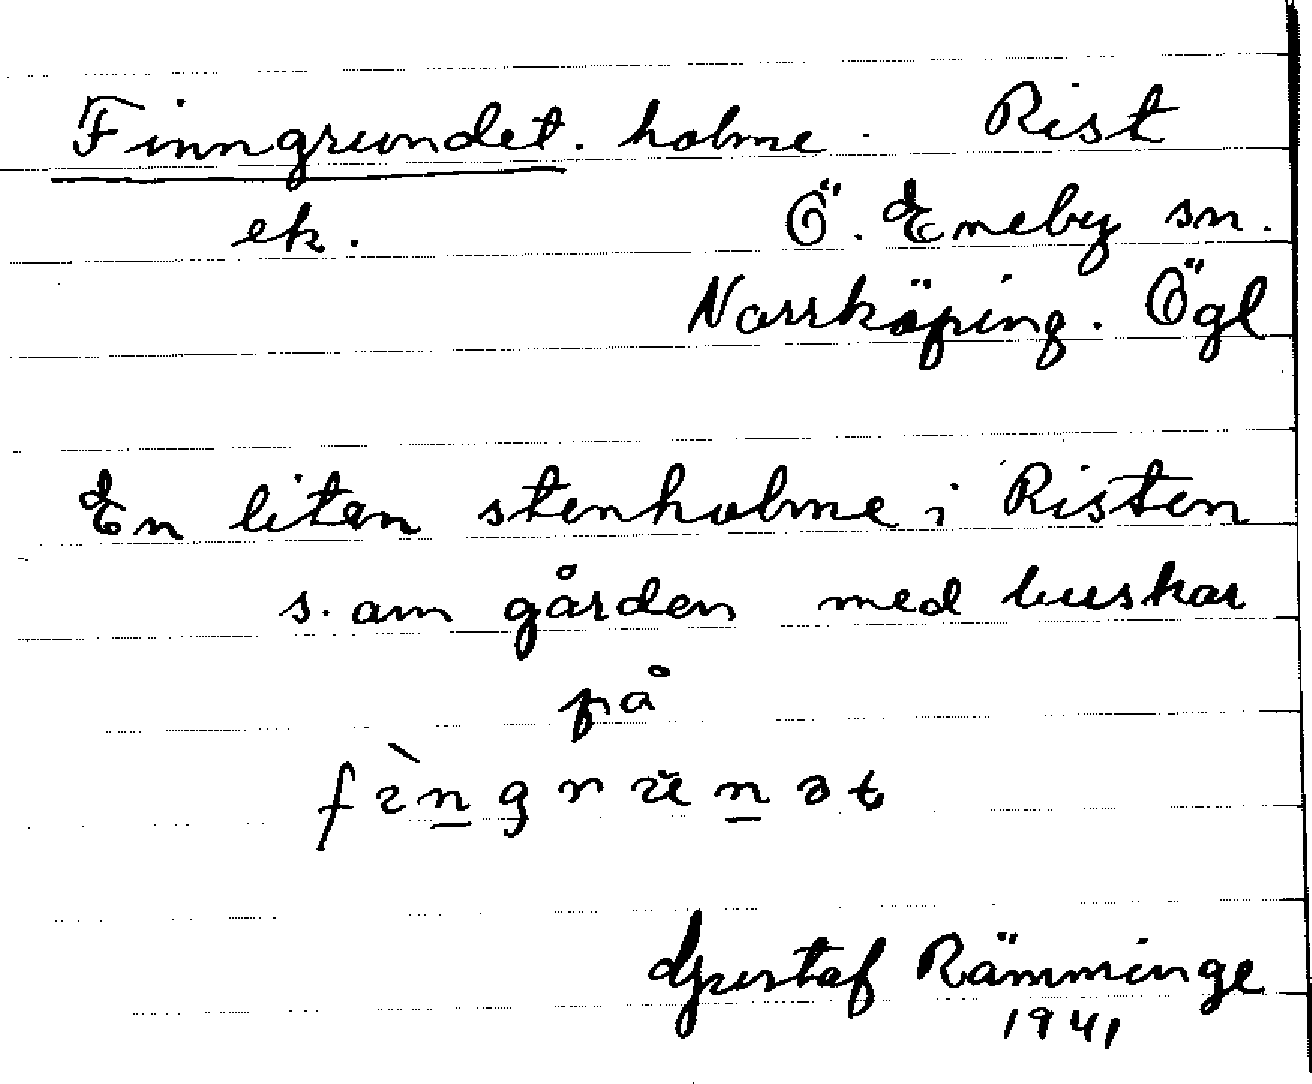 Finngrundet. holme. Rist
ek. Ö. Eneby sn.
Norrköping. Ögl
En liten stenholme i Risten
s. om gården med buskar
på
fìngrunət
Gustaf Rämminge
1941